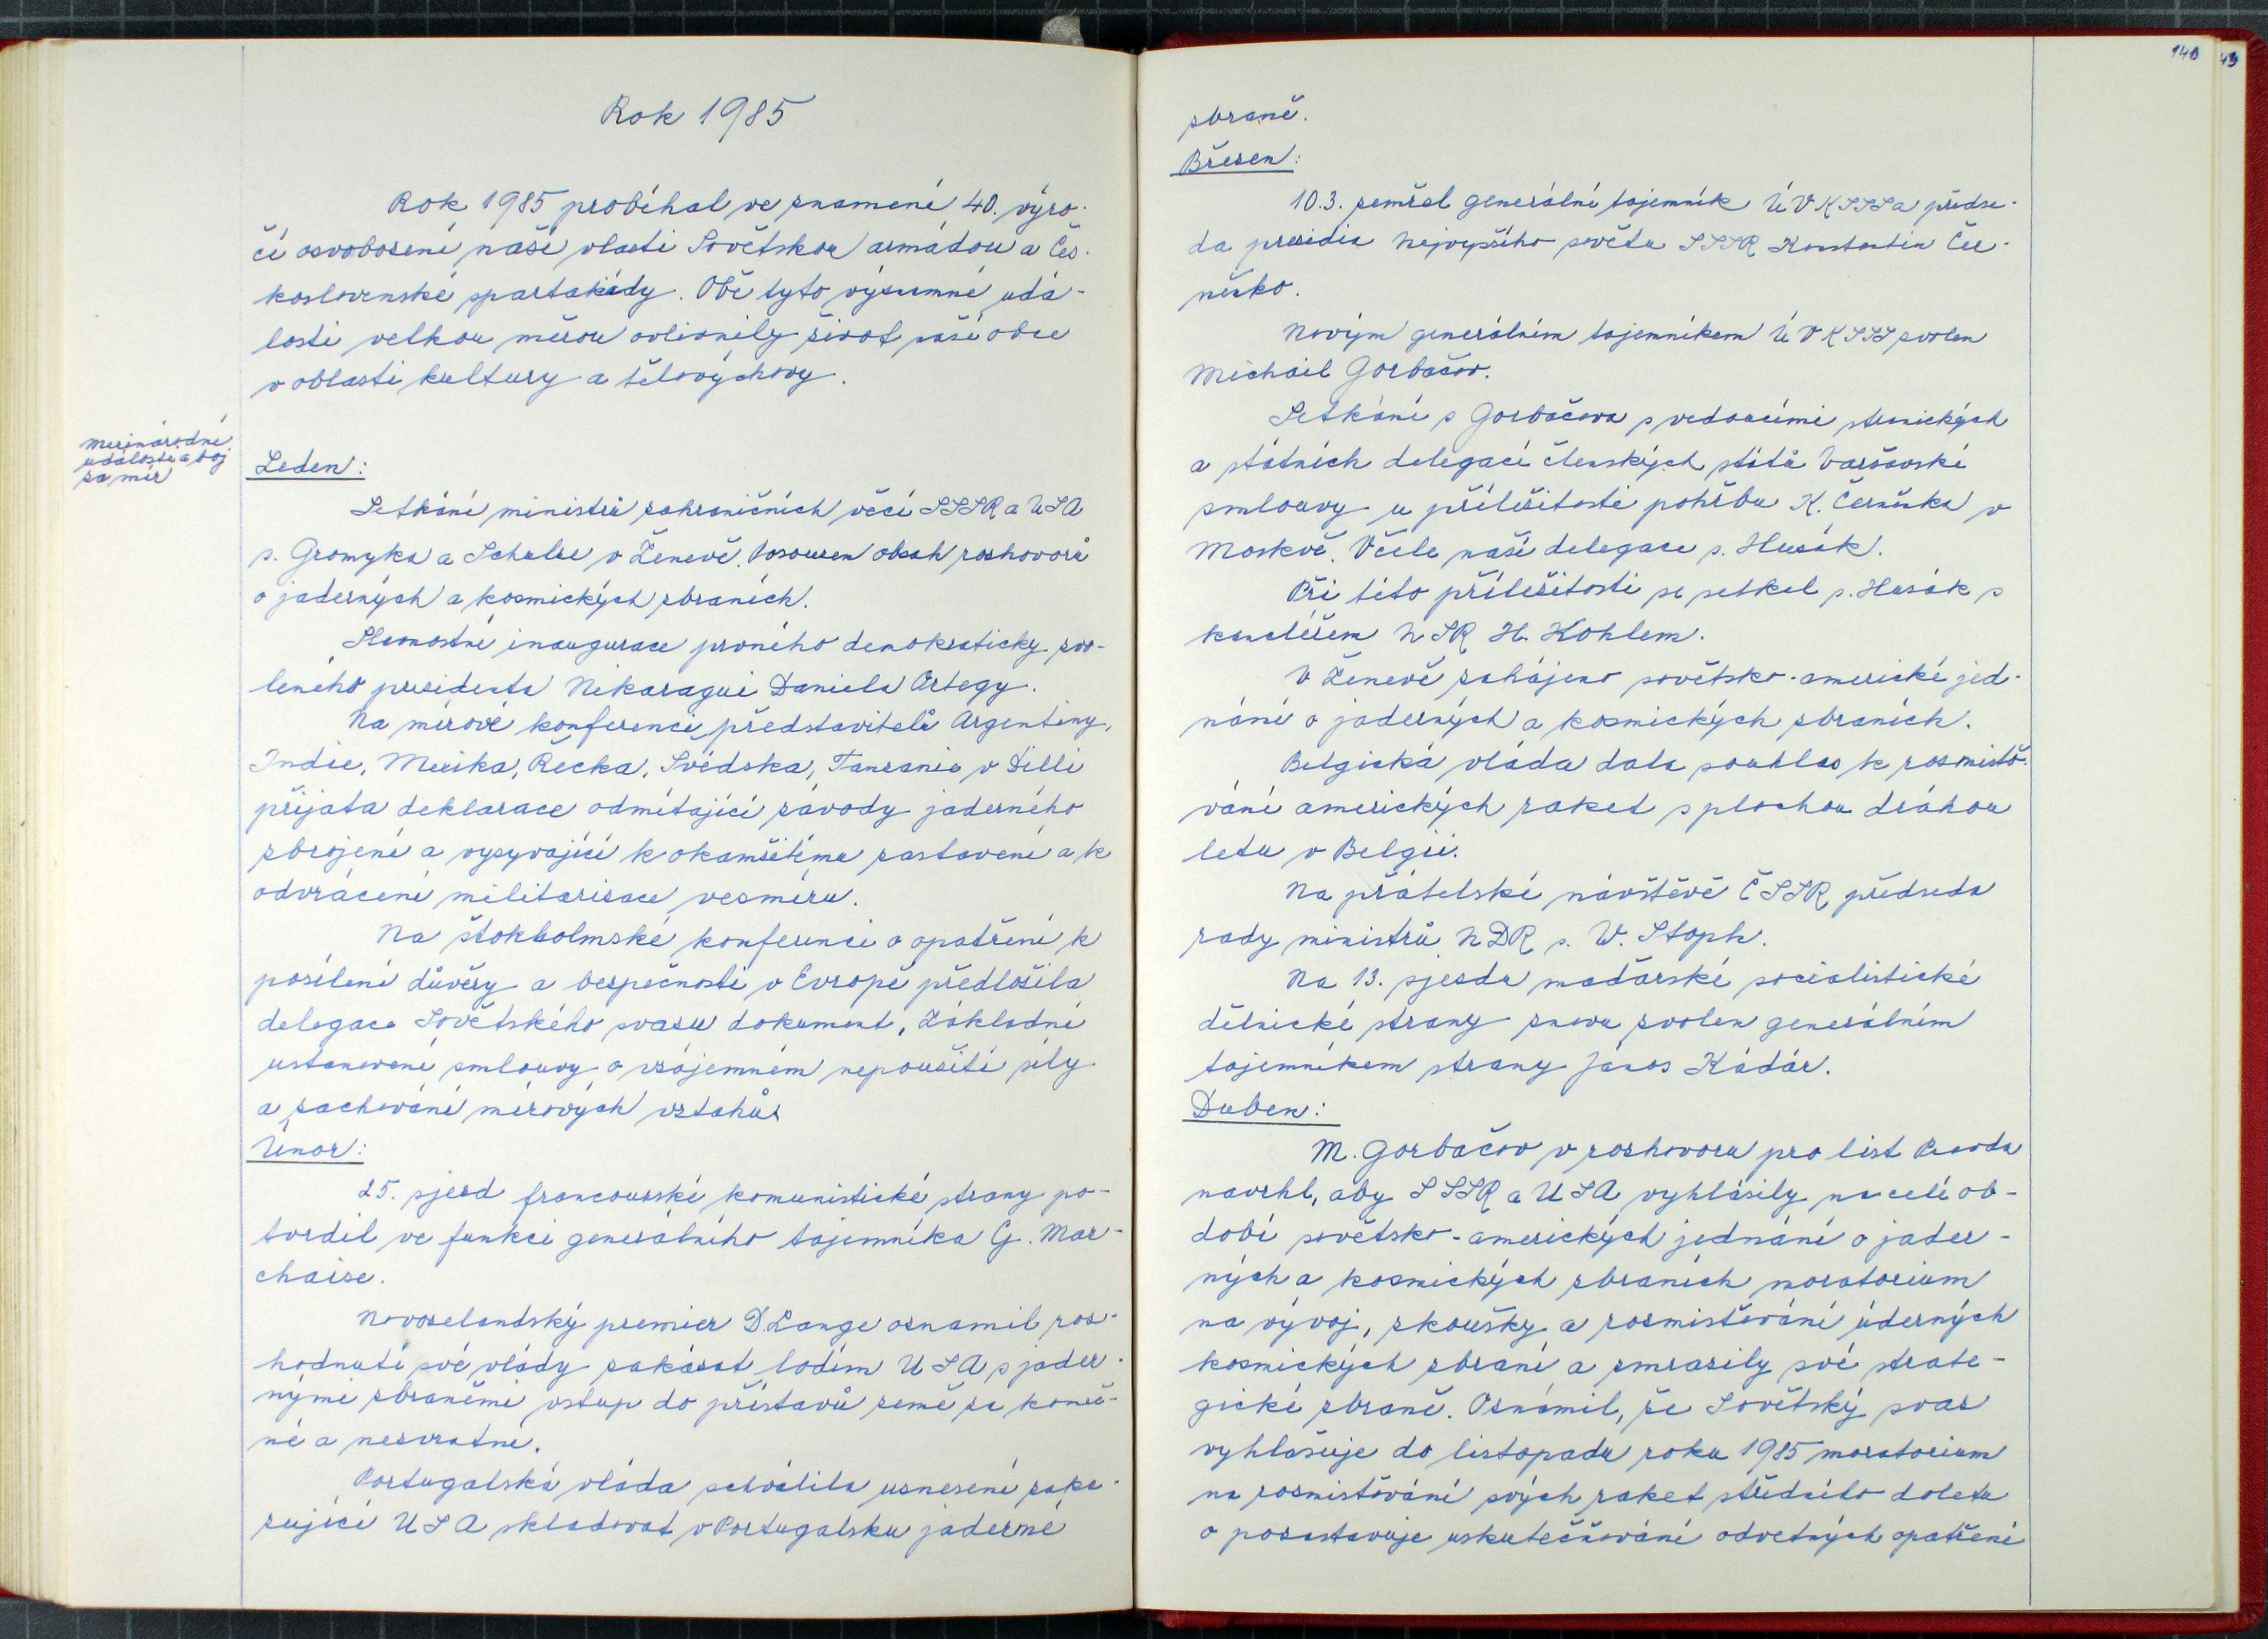 Rok 1985
Rok 1985 probíhal ve znamení 40. výro-
čí osvobození naší vlasti Sovětskou armádou a Čes-
koslovenské spartakiády. Obě tyto významné udá-
losti velkou měrou ovlivnily život naší obce
v oblasti kultury a tělovýchovy.
Mezinárodní
události a boj
za mír
Leden:
Setkání ministrů zahraničních věcí SSSR a USA
s. Gromyka a Schulze v Ženevě. Posouzen obsah rozhovorů
o jaderných a kosmických zbraních.
Slavnostní inaugurace prvního demokraticky zvo-
leného presidenta Nikaragui Daniela Ortegy.
Na mírové konferenci představitelů Argentiny,
Indie, Mexika, Řecka, Švédska, Tanzanie v Dillí
přijata deklarace odmítající závody jaderného
zbrojení a vyzývající k okamžitému zastavení a k
odvrácení militarizace vesmíru.
Na štokholmské konferenci o opatření k
posílení důvěry a bezpečnosti v Evropě předložila
delegace Sovětského svazu dokument „Základní
ustanovení smlouvy o vzájemném nepoužití síly
a zachování mírových vztahů"
Únor:
25. sjezd francouzské komunistické strany po-
tvrdil ve funkci generálního tajemníka G. Mar-
chaise.
Novozelandský premier D. Lange oznamil roz-
hodnutí své vlády zakázat lodím USA s jader-
nými zbraněmi vstup do přístavů země za koneč-
né a nezvratné.
Portugalská vláda schválila usnesení zaka-
zující USA skladovat v Portugalsku jaderné
140
zbraně.
Březen:
10.3. zemřel generální tajemník ÚV KSSS a předse-
da presidia Nejvyššího sovětu SSSR Konstantin Čer-
něnko.
Novým generálním tajemníkem ÚV KSSS zvolen
Michail Gorbačov.
Setkání s Gorbačova s vedoucími stranických
a státních delegací členských států Varšavské
smlouvy u příležitosti pohřbu K. Černěnka v
Moskvě. V čele naší delegace s. Husák.
Při této příležitosti se setkal s. Husák s
kancléřem NSR H. Kohlem.
V Ženevě zahájeno sovětsko-americké jed-
nání o jaderných a kosmických zbraních.
Belgická vláda dala souhlas k rozmisťo-
vání amerických raket s plochou dráhou
letu v Belgii.
Na přátelské návštěvě ČSSR předseda
rady ministrů NDR s. W. Stoph.
Na 13. sjezdu maďarské socialistické
dělnické strany znovu zvolen generálním
tajemníkem strany János Kádár.
Duben:
M. Gorbačov v rozhovoru pro list Pravda
navrhl, aby SSSR a USA vyhlásily na celé ob-
dobí sovětsko-amerických jednání o jader-
ných a kosmických zbraních moratorium
na vývoj, zkoušky a rozmisťování úderných
kosmických zbraní a zmrazily své strate-
gické zbraně. Oznámil, že Sovětský svaz
vyhlašuje do listopadu roku 1985 moratorium
na rozmisťování svých raket středního doletu
a pozastavuje uskutečňování odvetných opatření